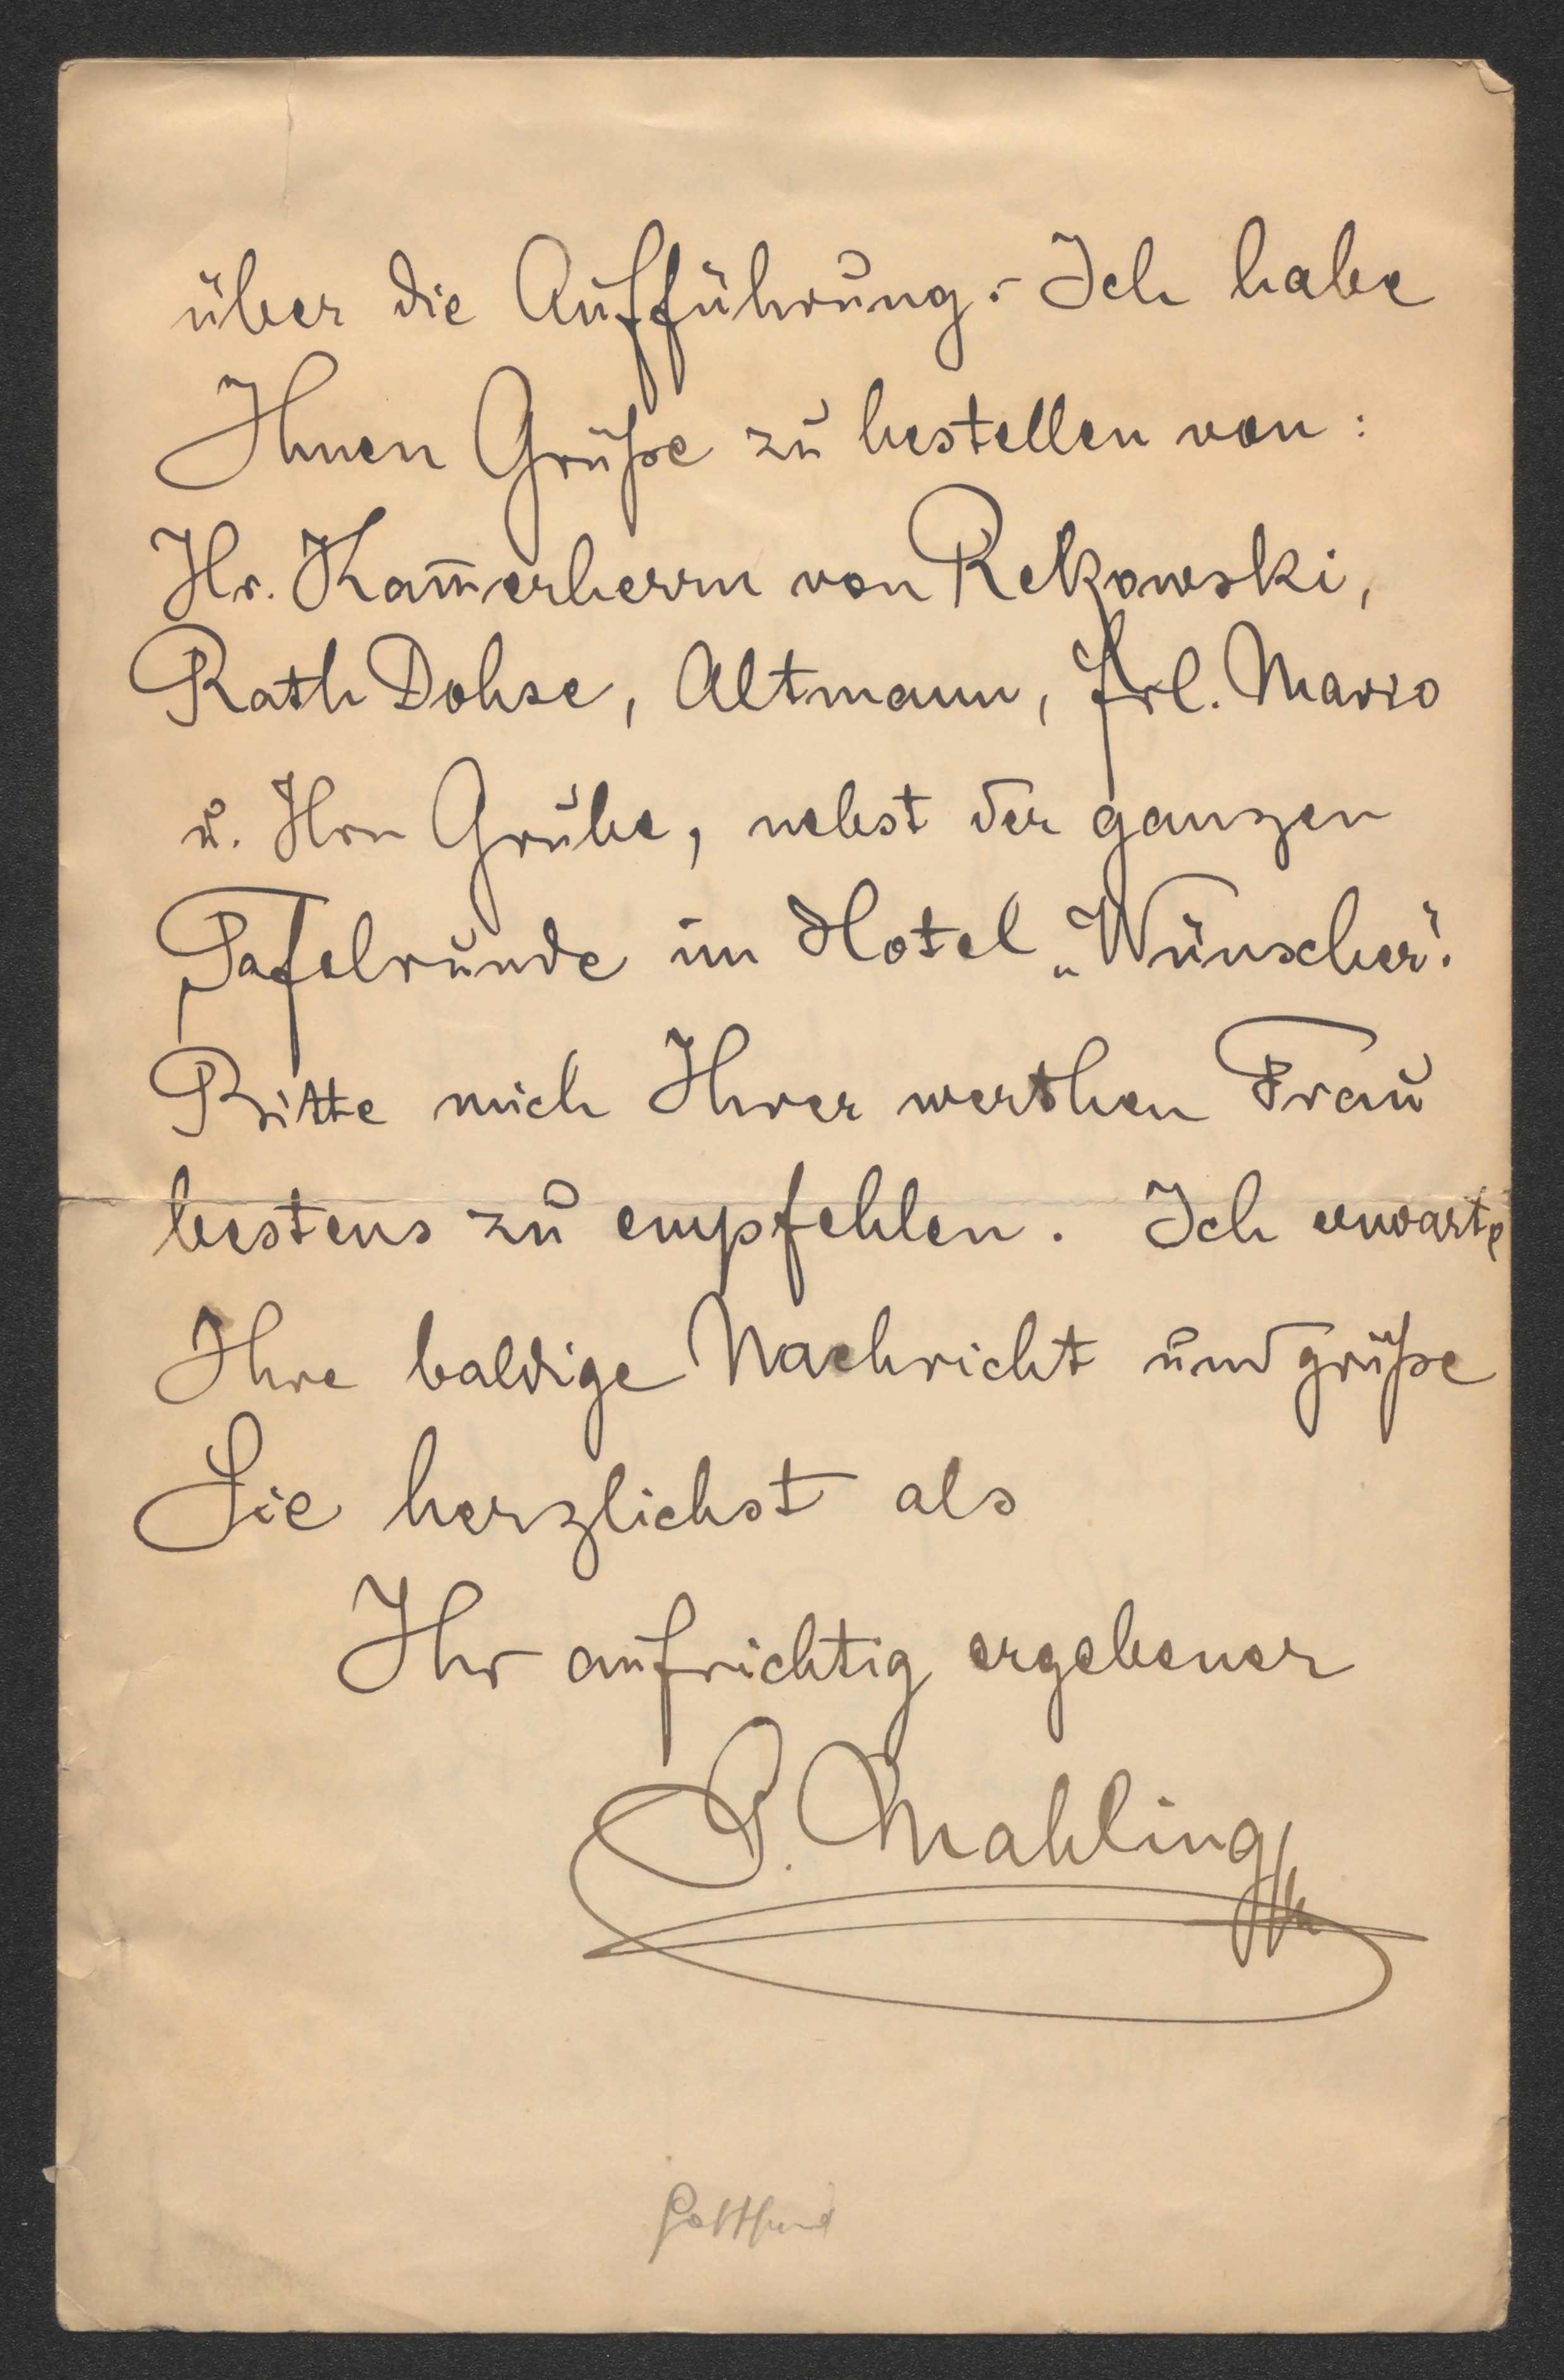 über die Aufführung. – Ich habe
Ihnen Grüße zu bestellen von:
Hr. Kam̅erherrn von Rekowski,
Rath Dohse, Altmann, Frl. Mario
u. Hrn Grube, nebst der ganzen
Tafelrunde im Hotel „Wünscher".
Bitte mich Ihrer werthen Frau
bestens zu empfehlen. Ich erwarte
Ihre baldige Nachricht und grüße
Sie herzlichst als
Ihr aufrichtig ergebener
G. Mahling
Gottfried